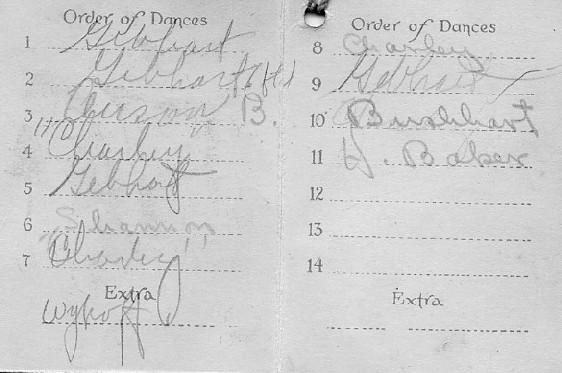 Order of Dances
1 Gebhart
2 Gebhart
3 B.
4 Charley
5 Gebhart
6 "Shannon"
7 Charley
Extra
Wykoff
Order of Dances
8 Charley
9 Gebhart
10 Burkhart
11 H. Baker
12
13
14
Extra